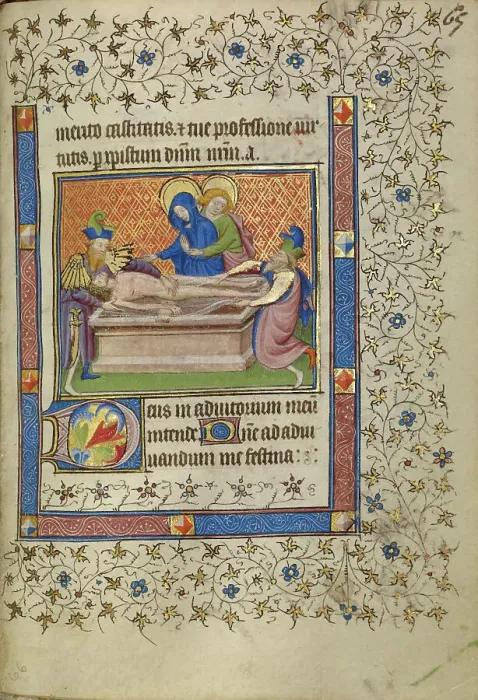 65
mento castitatis. ⁊ tue professione uir
tutis. p xpistum dn̄m nr̄m. a.
Deus in adiutorium meū
intende Dn̄e ad adiu
uandum me festina: